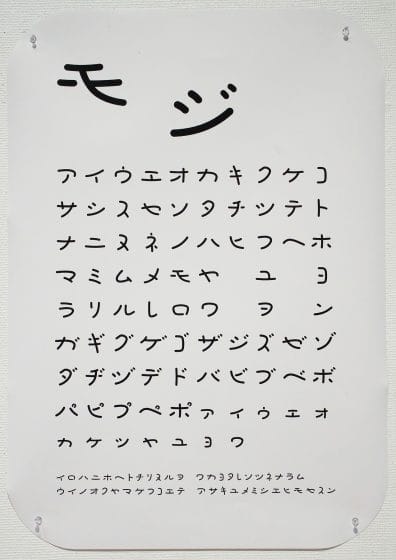 モジ
アイウエオカキクケコ
サシスセソタチツテト
ナニヌネノハヒフヘホ
マミムメモヤ ユ ヨ
ラリルレロワ ヲ ン
ガギグゲゴザジズゼゾ
ダヂヅデドバビブベボ
パピプペポァィゥェォ
ヵヶッャュョヮ
イロハニホヘトチリヌルヲ ワカヨタレソツネナラム
ウイノオクヤマケフコエテ アサキユメミシエヒモセスン